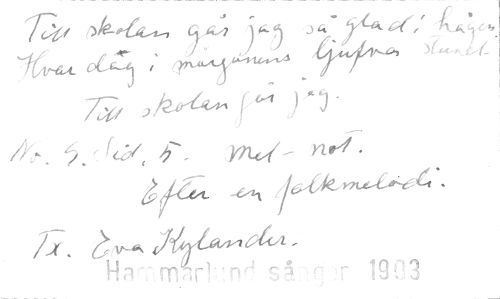 Till skolan går jag så glad i hågen
Hvar dag i morgonens ljufva stund
Till skolan går jag.
No. 5. Sid. 5. Mel-not.
Efter en folkmelodi.
Tx. Eva Kylander.
Hammarlund sånger 1903